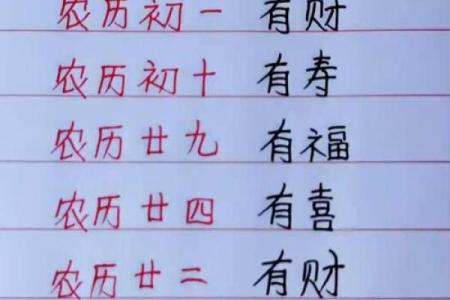 农历初一 有财
农历初十 有寿
农历廿九 有福
农历廿四 有喜
农历廿二 有财